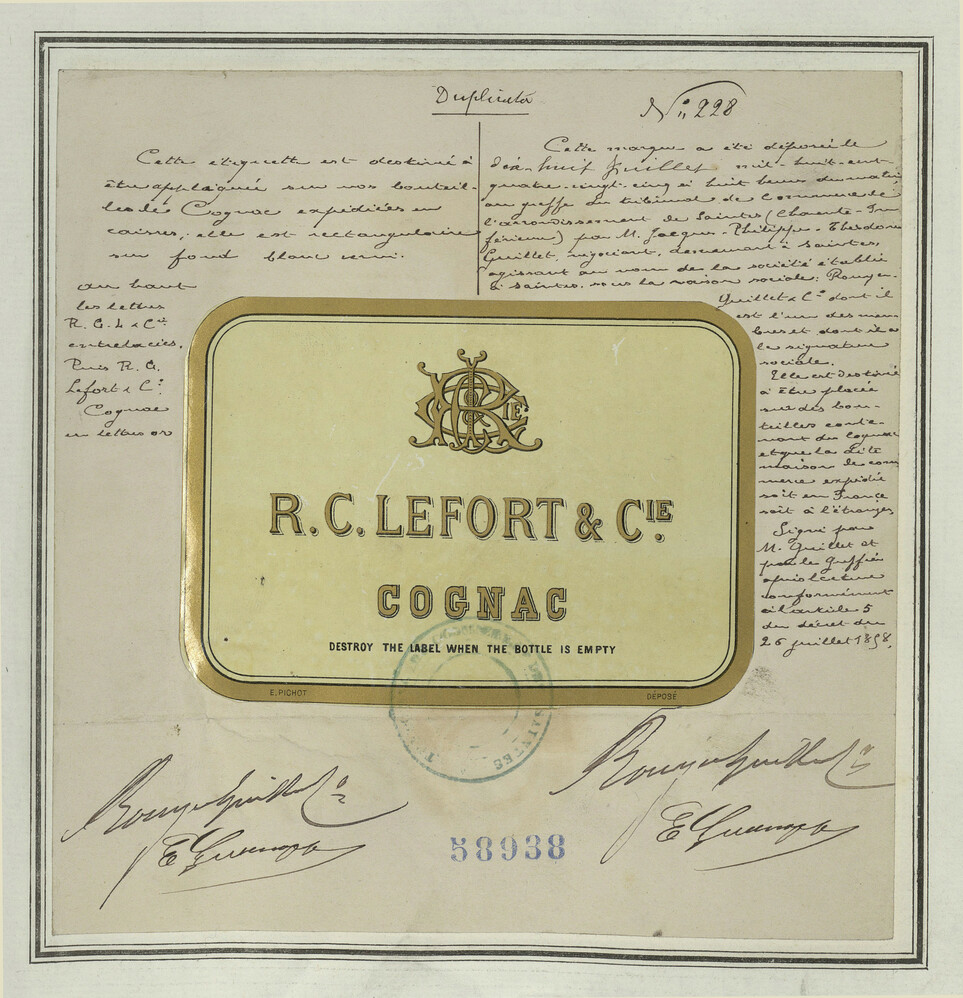 Duplicata
N° 228
Cette étiquette est destinée à
être appliquée sur nos bouteil-
les de Cognac expédiées en
caisses, elle est rectangulaire
sur fond blanc verni.
au haut
les lettres
R. C. L & Cie
entrelacées.
Puis R. C.
Lefort & Cie
Cognac
en lettres or
Cette marque a été déposée le
dix-huit Juillet mil-huit-cent
quatre-vingt-cinq à huit heures du matin
au greffe du tribunal de Commerce de
l'arrondissement de Saintes (Charente-In
férieure) par M. Jacques-Philippe-Théodore
Guillet, négociant, demeurant à Saintes,
agissant au nom de la société établie
à Saintes, sous la raison sociale: Rouyer,
Guillet & Cie dont il
est l'un des mem
bres et dont il a
la signature
sociale.
Elle est destinée
à être placée
sur des bou-
teilles conte-
nant du Cognac
et que la dite
maison de com
merce expédie
soit en France
soit à l'étranger
Signé par
M. Guillet et
par le Greffier
après lecture
conformément
à l'article 5
du décret du
26 juillet 1858.
RCL & CIE
R. C. LEFORT & CIE.
COGNAC
DESTROY THE LABEL WHEN THE BOTTLE IS EMPTY
E. PICHOT
DÉPOSÉ
DE SAINTES
Rouyer Guillet Cie
Rouyer Guillet Cie
58938